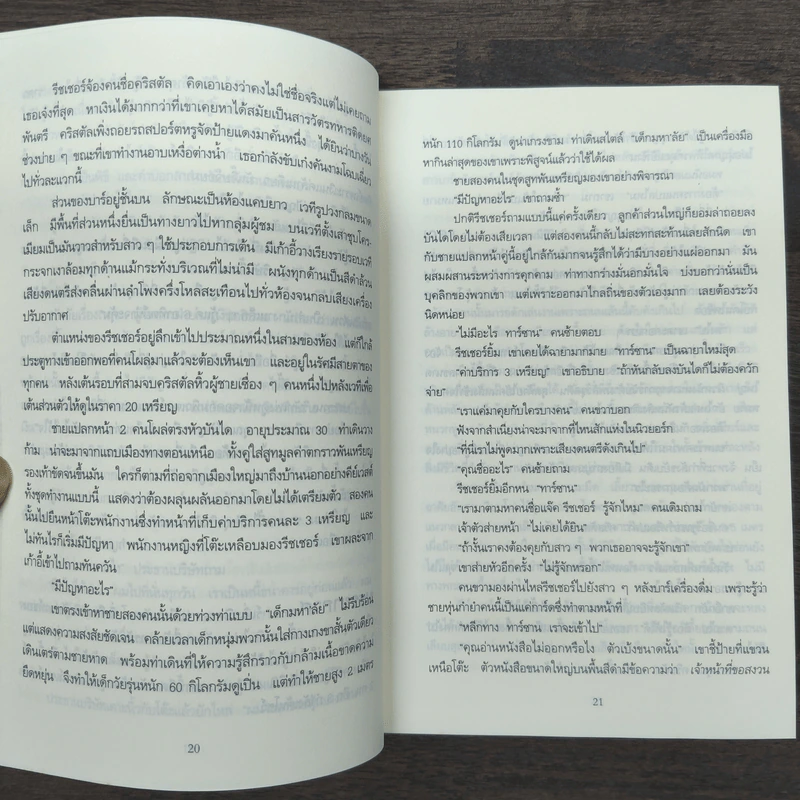 รีชเชอร์จ้องคนชื่อคริสตัล คิดเอาเองว่าคงไม่ใช่ชื่อจริงแต่ไม่เคยถาม
เธอเจ๋งที่สุด หาเงินได้มากกว่าที่เขาเคยหาได้สมัยเป็นสารวัตรทหารติดยศ
พันตรี คริสตัลเพิ่งถอยรถสปอร์ตหรูจัดป้ายแดงมาคันหนึ่ง ได้ยินว่าบางวัน
ช่วงบ่าย ๆ ขณะที่เขาทำงานอาบเหงื่อต่างน้ำ เธอกำลังขับเก๋งคันงามโฉบเฉี่ยว
ไปทั่วละแวกนี้
ส่วนของบาร์อยู่ชั้นบน ลักษณะเป็นห้องแคบยาว เวทีรูปวงกลมขนาด
เล็ก มีพื้นที่ส่วนหนึ่งยื่นเป็นทางยาวไปหากลุ่มผู้ชม บนเวทีตั้งเสาชุบโคร-
เมียมเป็นมันวาวสำหรับสาว ๆ ใช้ประกอบการเต้น มีเก้าอี้วางเรียงรายรอบเวที
กระจกเงาล้อมทุกด้านแม้กระทั่งบริเวณที่ไม่น่ามี ผนังทุกด้านเป็นสีดำล้วน
เสียงดนตรีส่งคลื่นผ่านลำโพงครึ่งโหลสะเทือนไปทั่วห้องจนกลบเสียงเครื่อง
ปรับอากาศ
ตำแหน่งของรีชเชอร์อยู่ลึกเข้าไปประมาณหนึ่งในสามของห้อง แต่ก็ใกล้
ประตูทางเข้าออกพอที่คนโผล่มาแล้วจะต้องเห็นเขา และอยู่ในรัศมีสายตาของ
ทุกคน หลังเต้นรอบที่สามจบคริสตัลหิ้วผู้ชายเซื่อง ๆ คนหนึ่งไปหลังเวทีเพื่อ
เต้นส่วนตัวให้ดูในราคา 20 เหรียญ
ชายแปลกหน้า 2 คนโผล่ตรงหัวบันได อายุประมาณ 30 ท่าเดินวาง
ก้าม น่าจะมาจากแถบเมืองทางตอนเหนือ ทั้งคู่ใส่สูทมูลค่าตกราวพันเหรียญ
รองเท้าขัดจนขึ้นมัน ใครก็ตามที่ถ่อจากเมืองใหญ่มาถึงบ้านนอกอย่างคีย์เวสต์
ทั้งชุดทำงานแบบนี้ แสดงว่าต้องผลุนผลันออกมาโดยไม่ได้เตรียมตัว สองคน
นั้นไปยืนหน้าโต๊ะพนักงานซึ่งทำหน้าที่เก็บค่าบริการคนละ 3 เหรียญ และ
ไม่ทันไรก็เริ่มมีปัญหา พนักงานหญิงที่โต๊ะเหลือบมองรีชเชอร์ เขาผละจาก
เก้าอี้เข้าไปถามทันควัน
“มีปัญหาอะไร”
เขาตรงเข้าหาชายสองคนนั้นด้วยท่วงท่าแบบ “เด็กมหา'ลัย” ไม่รีบร้อน
แต่แสดงความสงสัยชัดเจน คล้ายเวลาเด็กหนุ่มพวกนั้นใส่กางเกงขาสั้นตัวเดียว
เดินเตร่ตามชายหาด พร้อมท่าเดินที่ให้ความรู้สึกราวกับกล้ามเนื้อขาดความ
ยืดหยุ่น จึงทำให้เด็กวัยรุ่นหนัก 60 กิโลกรัมดูเปิ่น แต่ทำให้ชายสูง 2 เมตร
20
หนัก 110 กิโลกรัม ดูน่าเกรงขาม ท่าเดินสไตล์ “เด็กมหา'ลัย” เป็นเครื่องมือ
หากินล่าสุดของเขาเพราะพิสูจน์แล้วว่าใช้ได้ผล
ชายสองคนในชุดสูทพันเหรียญมองเขาอย่างพิจารณา
“มีปัญหาอะไร” เขาถามซ้ำ
ปกติรีชเชอร์ถามแบบนี้แค่ครั้งเดียว ลูกค้าส่วนใหญ่ก็ยอมล่าถอยลง
บันไดโดยไม่ต้องเสียเวลา แต่สองคนนี้กลับไม่สะทกสะท้านเลยสักนิด เขา
กับชายแปลกหน้าคู่นี้อยู่ใกล้กันมากจนรู้สึกได้ว่ามีบางอย่างแผ่ออกมา มัน
ผสมผสานระหว่างการคุกคาม ท่าทางกร่างมั่นอกมั่นใจ บ่งบอกว่านั่นเป็น
บุคลิกของพวกเขา แต่เพราะออกมาไกลถิ่นของตัวเองมาก เลยต้องระวัง
นิดหน่อย
“ไม่มีอะไร ทาร์ซาน” คนซ้ายตอบ
รีชเชอร์ยิ้ม เขาเคยได้ฉายามากมาย “ทาร์ซาน” เป็นฉายาใหม่สุด
“ค่าบริการ 3 เหรียญ” เขาอธิบาย “ถ้าหันกลับลงบันไดก็ไม่ต้องควัก
จ่าย”
“เราแค่มาคุยกับใครบางคน” คนขวาบอก
ฟังจากสำเนียงน่าจะมาจากที่ไหนสักแห่งในนิวยอร์ก
“ที่นี่เราไม่พูดมากเพราะเสียงดนตรีดังเกินไป”
“คุณชื่ออะไร” คนซ้ายถาม
รีชเชอร์ยิ้มอีกหน “ทาร์ซาน”
“เรามาตามหาคนชื่อแจ๊ค รีชเชอร์ รู้จักไหม” คนเดิมถาม
เจ้าตัวส่ายหน้า “ไม่เคยได้ยิน”
“ถ้างั้นเราคงต้องคุยกับสาว ๆ พวกเธออาจจะรู้จักเขา”
เขาส่ายหัวอีกครั้ง “ไม่รู้จักหรอก”
คนขวามองผ่านไหล่รีชเชอร์ไปยังสาว ๆ หลังบาร์เครื่องดื่ม เพราะรู้ว่า
ชายหุ่นกำยำคนนี้เป็นแค่การ์ดซึ่งทำตามหน้าที่
“หลีกทาง ทาร์ซาน เราจะเข้าไป”
“คุณอ่านหนังสือไม่ออกหรือไง ตัวเบ้งขนาดนั้น” เขาชี้ป้ายที่แขวน
เหนือโต๊ะ ตัวหนังสือขนาดใหญ่บนพื้นสีดำมีข้อความว่า เจ้าหน้าที่ขอสงวน
21